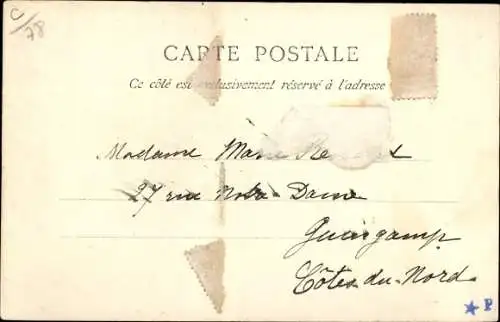 C/78
CARTE POSTALE
Ce côté est exclusivement réservé à l'adresse
Madame Marie
27 rue Notre-Dame
Guingamp
Côtes-du-Nord
★ P